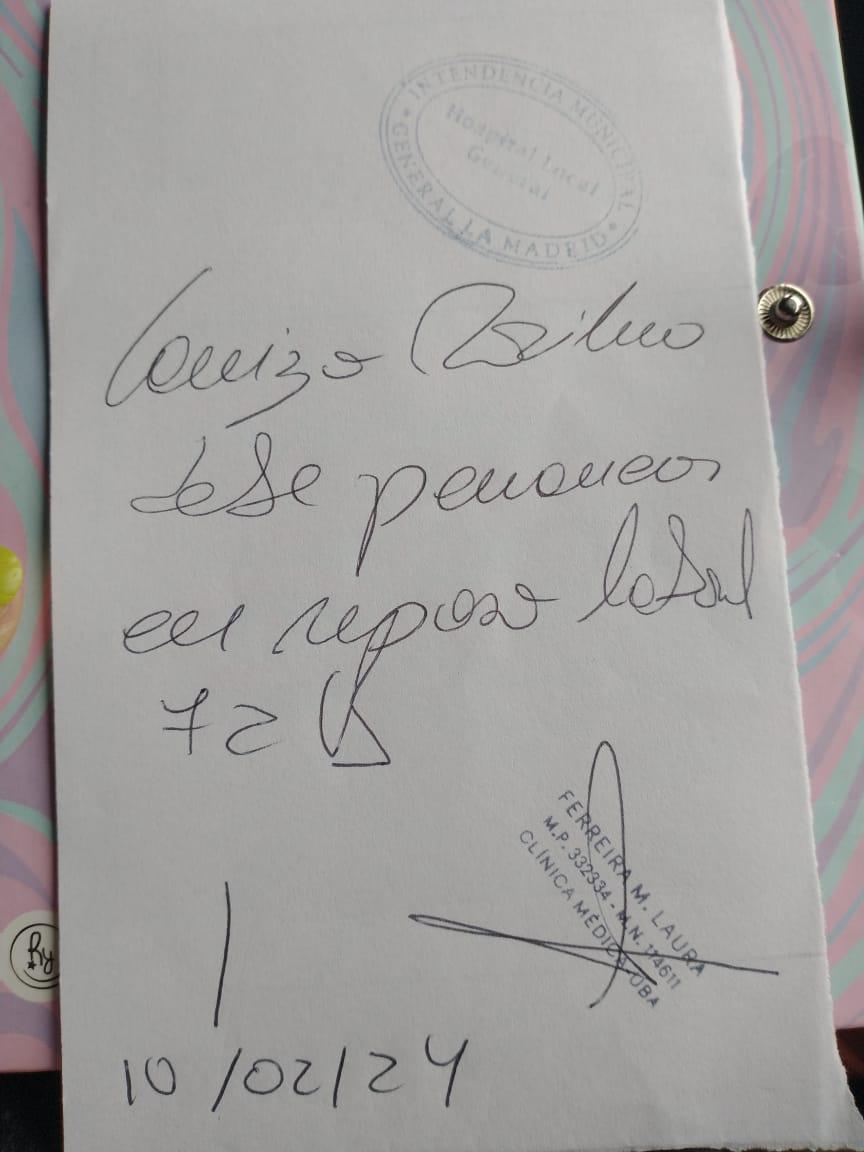 INTENDENCIA MUNICIPAL
Hospital Local
General
GENERAL LA MADRID
debe permanecer
en reposo laboral
72 h
FERREIRA M. LAURA
M.P. 332334 - M.N. 114611
CLÍNICA MÉDICA UBA
10/02/24
Ry